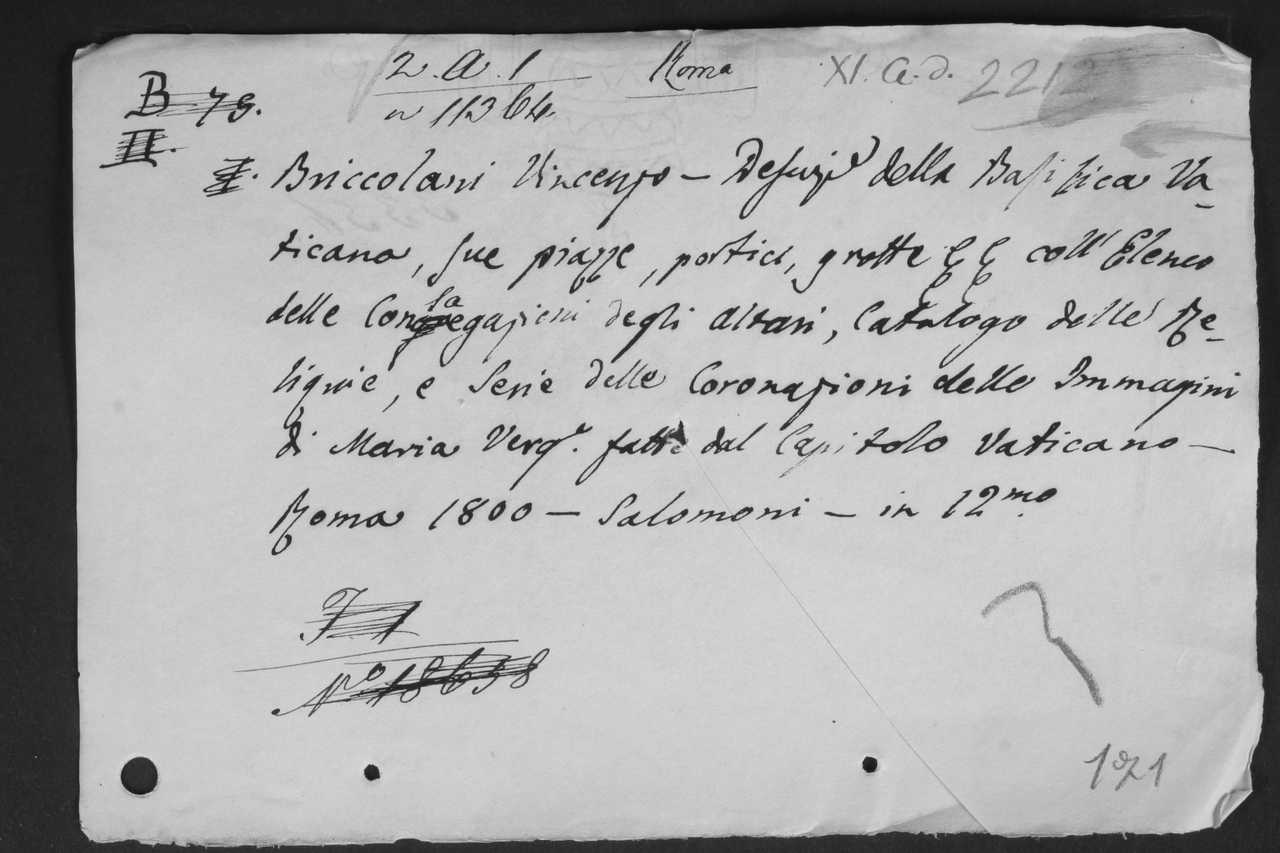 2.A.1 Roma XI. Ce. d. 2212
B 79. n 11364
II.
I. Briccolani Vincenzo – Descrizᵉ della Basilica Va-
ticana, sue piazze, portici, grotte &c &c coll'Elenco
delle Consagazioni degli altari, Catalogo delle Re-
liquie, e Serie delle Coronazioni delle Immagini
di Maria Vergᵉ. fatte dal Capitolo Vaticano –
Roma 1800 – Salomoni – in 12ᵐᵒ
F 1
Nº 18658
171